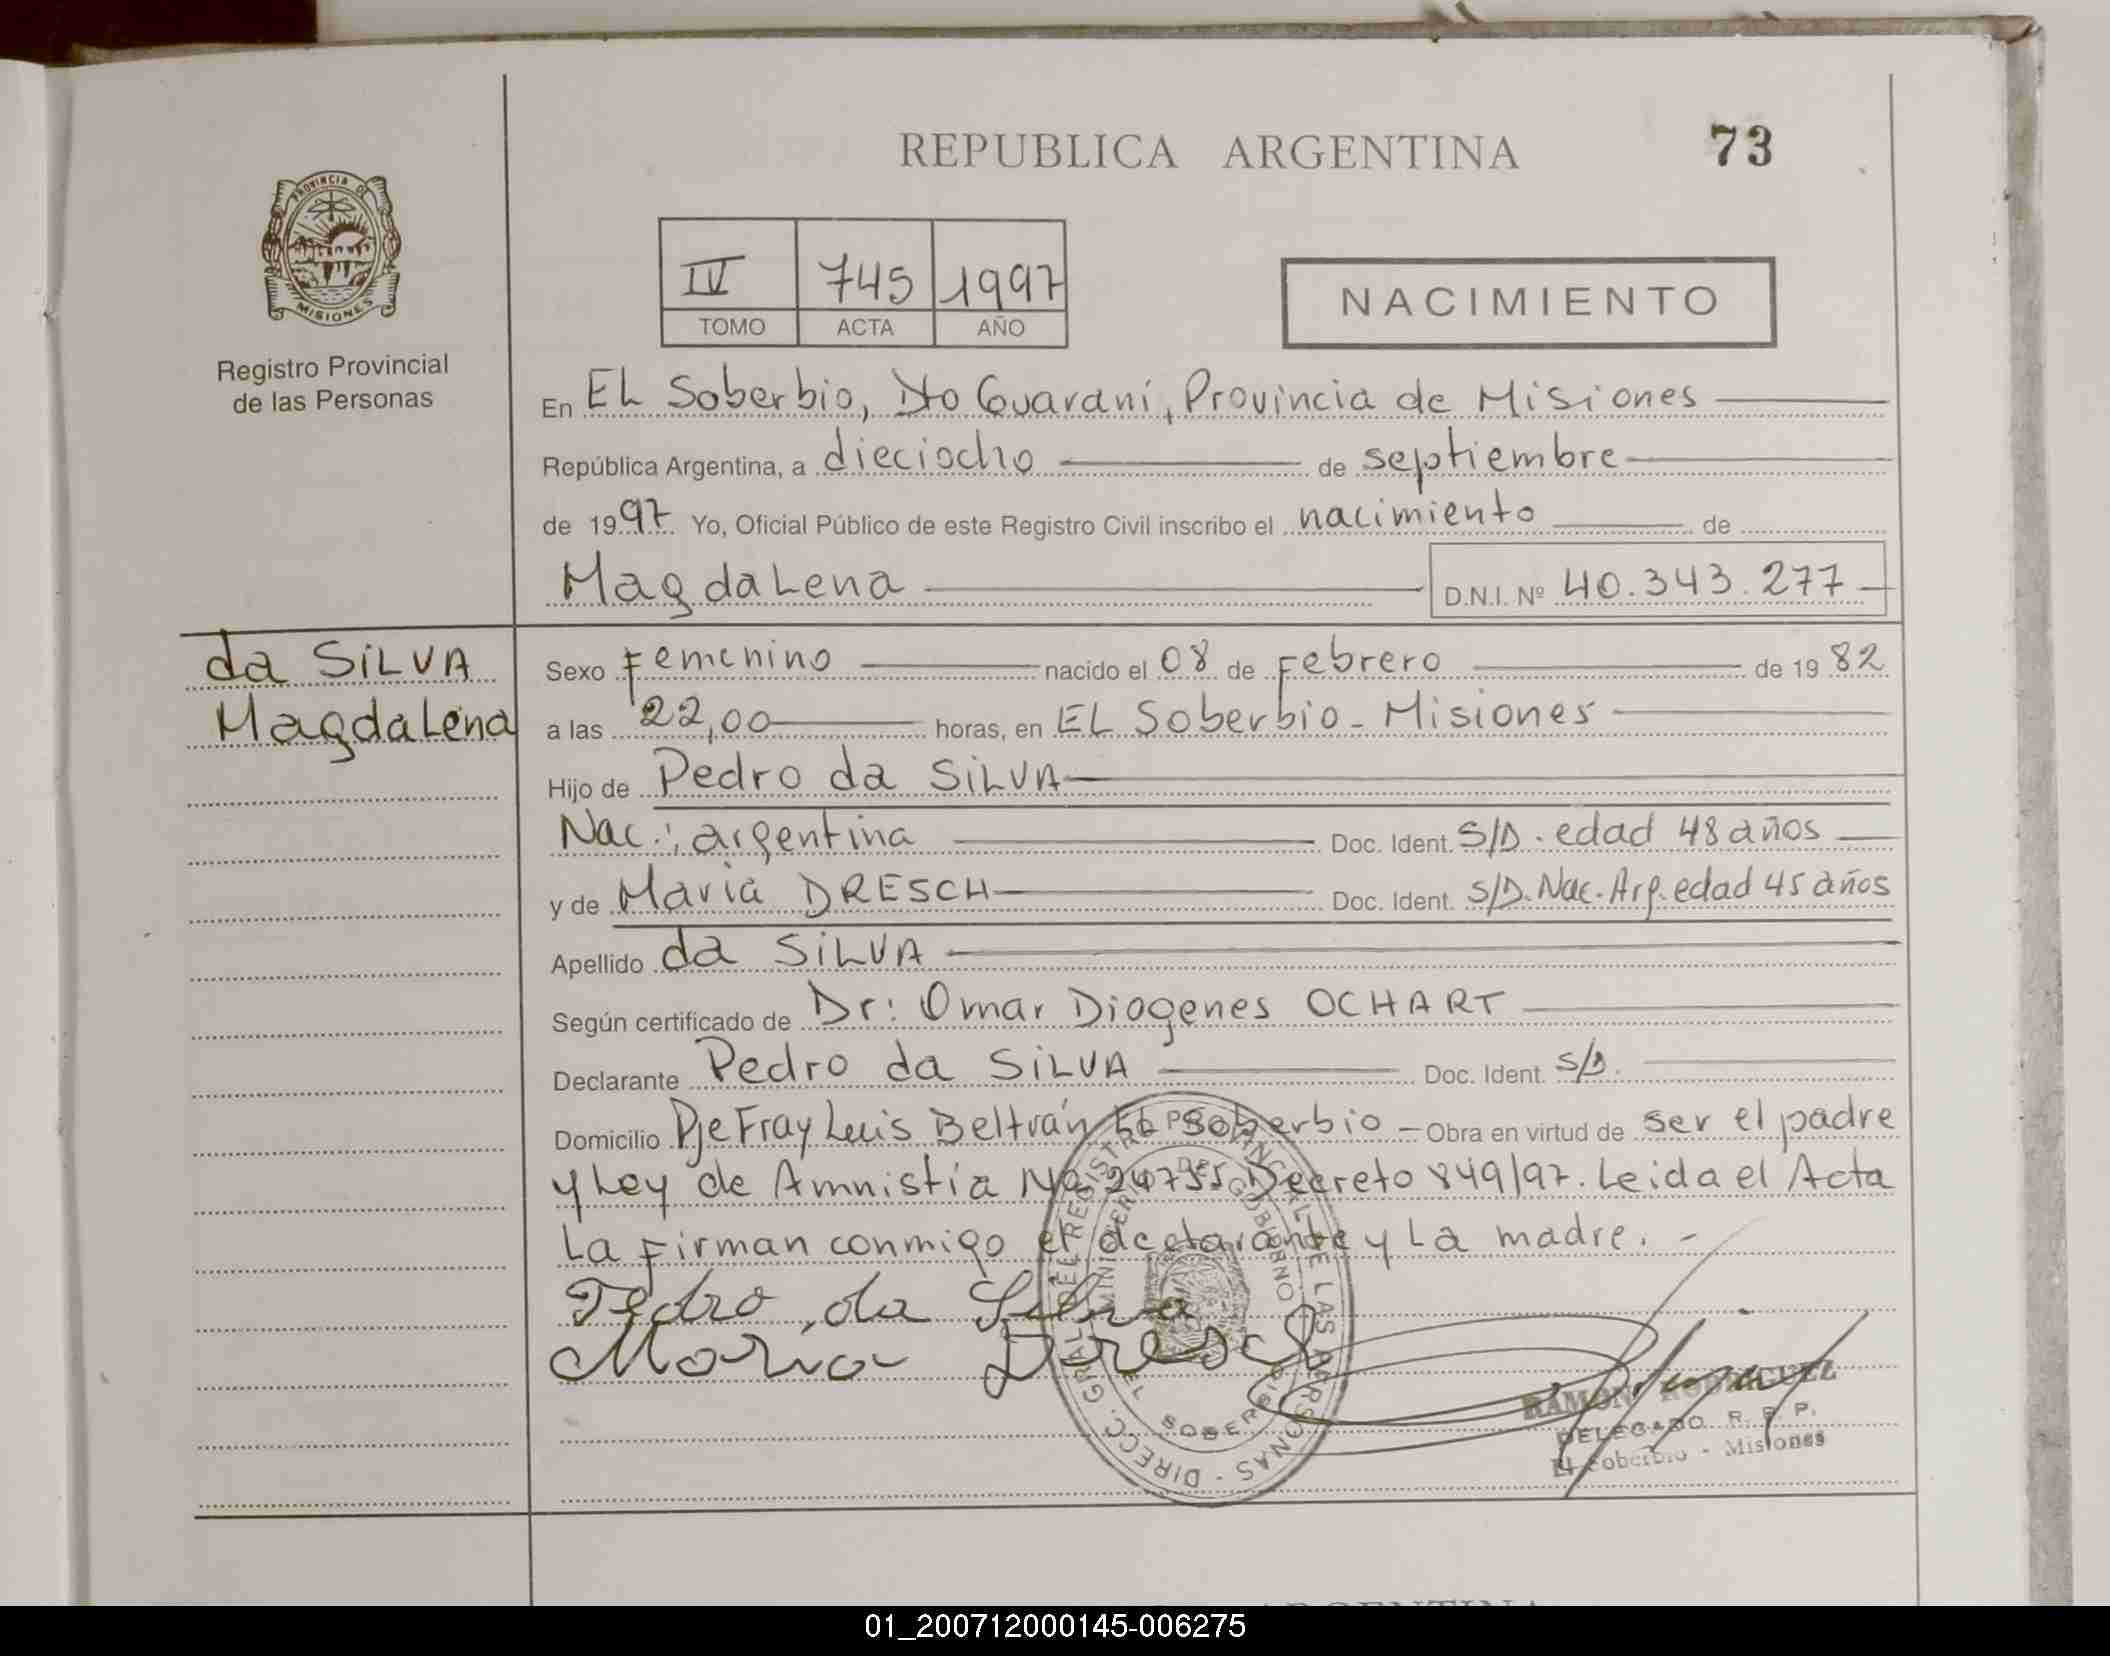 REPUBLICA ARGENTINA
73
PROVINCIA DE
MISIONES
Registro Provincial
de las Personas
IV 745 1997
TOMO ACTA AÑO
NACIMIENTO
En EL Soberbio, Dto Guaraní, Provincia de Misiones
República Argentina, a dieciocho de septiembre
de 1997 Yo, Oficial Público de este Registro Civil inscribo el nacimiento de
Magdalena D.N.I. Nº 40.343.277
da SiLVA
Magdalena
Sexo Femenino nacido el 08 de Febrero de 1982
a las 22,00 horas, en EL Soberbio - Misiones
Hijo de Pedro da SiLVA
Nac.: argentina Doc. Ident. S/D. edad 48 años
y de Maria DRESCH Doc. Ident. S/D. Nac. Arg. edad 45 años
Apellido da SiLVA
Según certificado de Dr: Omar Diogenes OCHART
Declarante Pedro da SiLVA Doc. Ident. S/D.
Domicilio Pje Fray Luis Beltrán EL Soberbio - Obra en virtud de ser el padre
y Ley de Amnistía No 24755 Decreto 849/97. Leida el Acta
La Firman conmigo el declarante y La madre. -
Pedro da Silva
Maria Dresch
DIRECC. GRAL. DEL REGISTRO PROVINCIAL DE LAS PERSONAS
MINISTERIO DE GOBIERNO
EL SOBERBIO
RAMON RODRIGUEZ
DELEGADO R. P. P.
El Soberbio - Misiones
01_200712000145-006275